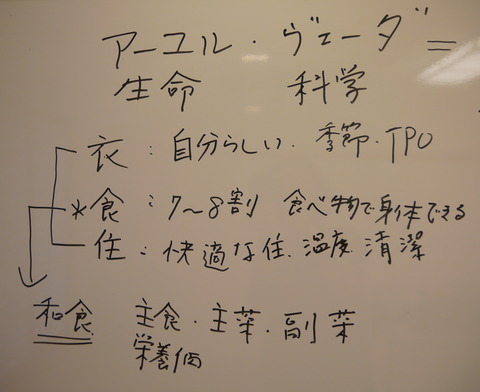 アーユル・ヴェーダ =
生命 科学
衣：自分らしい．季節・TPO
*食：7〜8割 食べ物で身体できる
住：快適な住．温度 清潔
和食 主食・主菜・副菜
栄養価